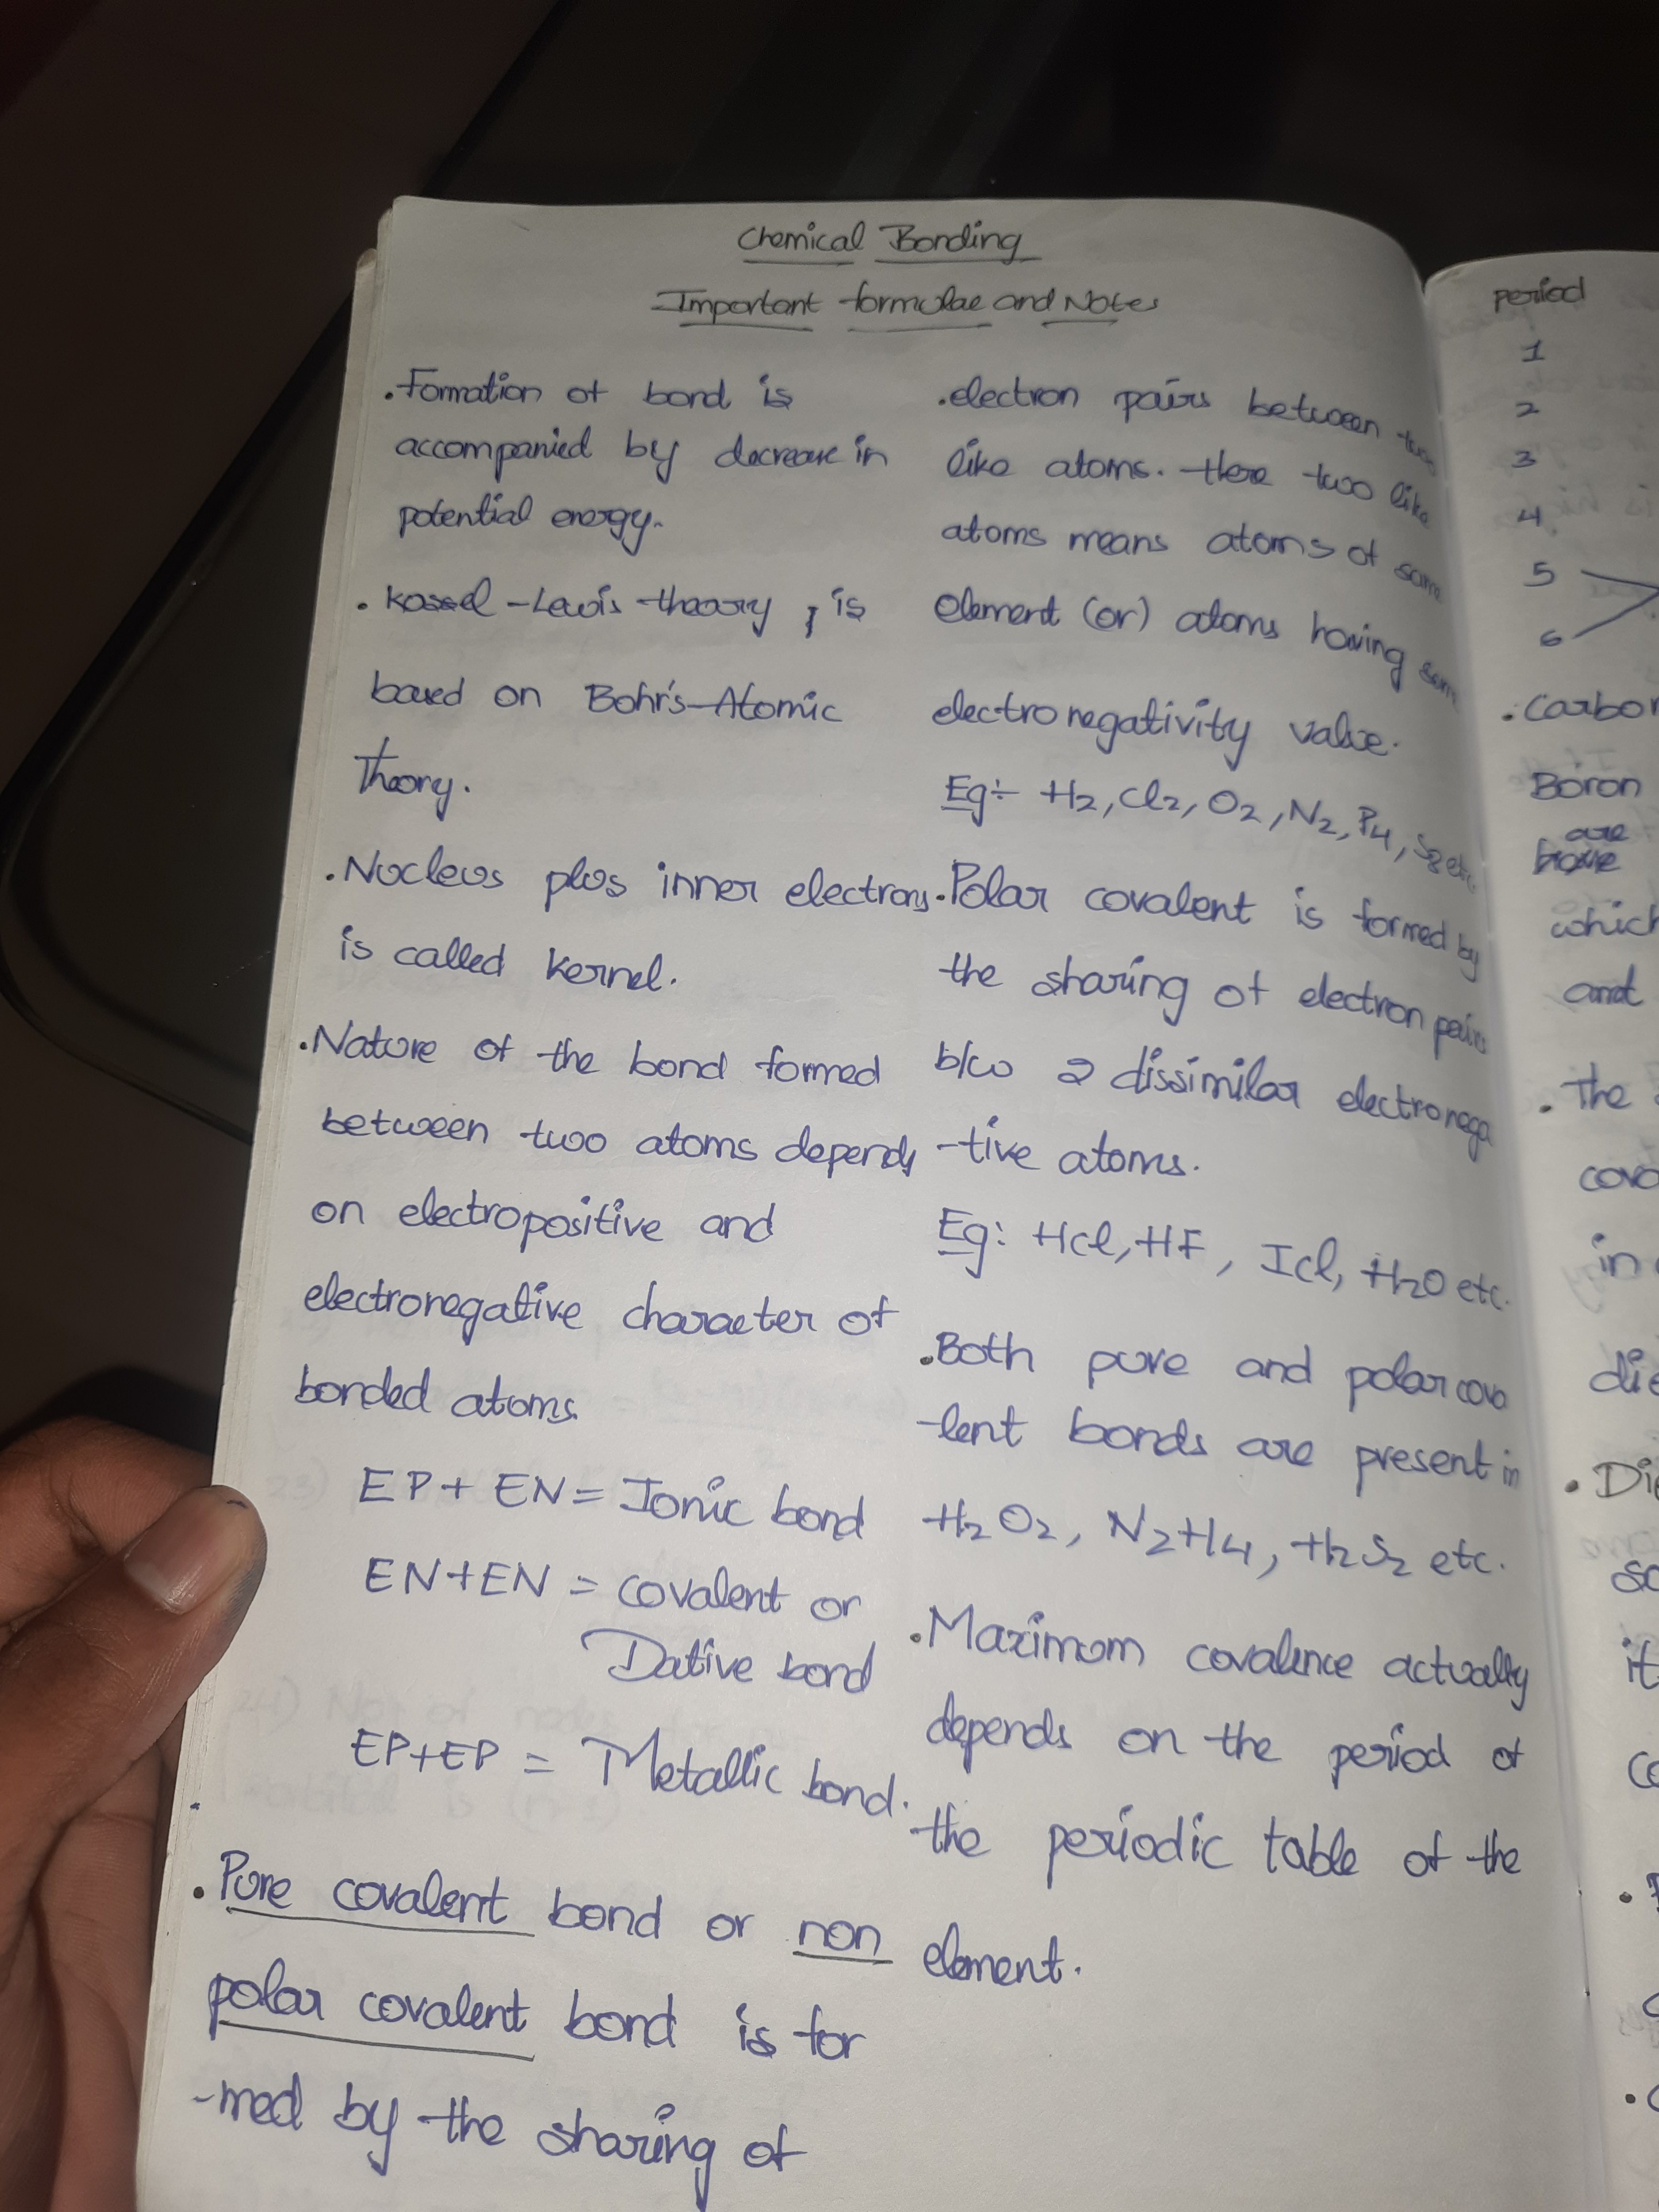 Chemical Bonding
Important formulae and Notes
.Formation of bond is
accompanied by decrease in
potential energy.
. Kossel-Lewis theory, is
based on Bohr's-Atomic
Theory.
.Nucleus plus inner electrons
is called kernel.
.Nature of the bond formed
between two atoms depends
on electropositive and
electronegative character of
bonded atoms.
EP + EN = Ionic bond
EN+EN = covalent or
Dative bond
EP+EP = Metallic bond.
.Pure covalent bond or non
polar covalent bond is for
-med by the sharing of
.electron pairs between two
like atoms. Here two like
atoms means atoms of same
element (or) atoms having same
electronegativity value.
Eg:- H2, Cl2, O2, N2, P4, S8 etc
.Polar covalent is formed by
the sharing of electron pairs
b/w 2 dissimilar electronega
-tive atoms.
Eg: HCl, HF, ICl, H2O etc.
.Both pure and polar cova
-lent bonds are present in
H2O2, N2H4, H2S2 etc.
.Maximum covalence actually
depends on the period of
the periodic table of the
element.
period
1
2
3
4
5
6
.Carbon
Boron
are
which
and
. The
in
. Di
it